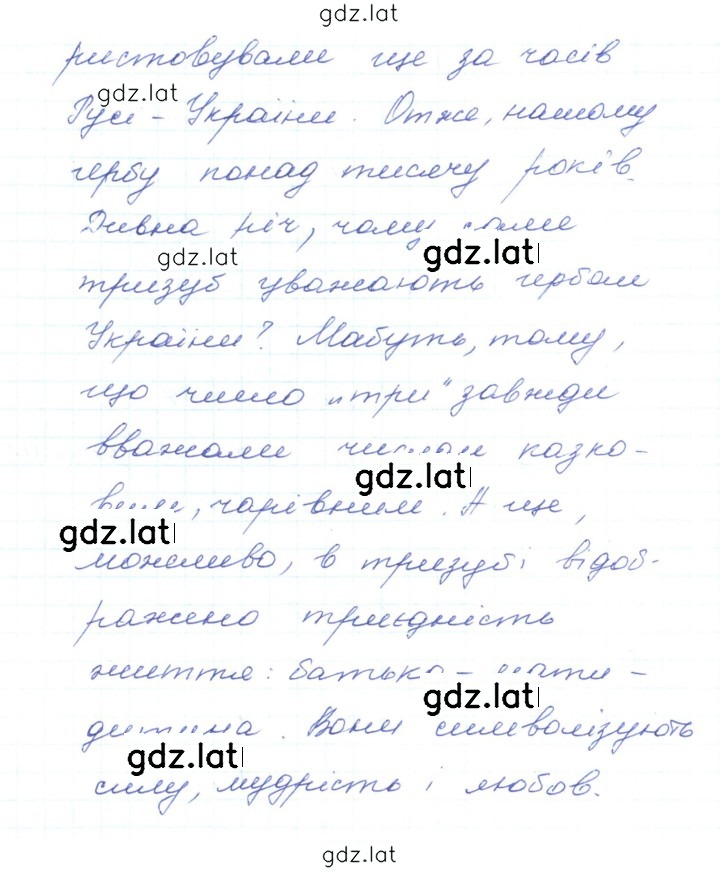 gdz.lat
ристовували ще за часів
gdz.lat
Русі - України. Отже, нашому
гербу понад тисячу років.
Дивна річ, чому саме
gdz.lat
gdz.lat
тризуб уважають гербом
України? Мабуть, тому,
що число „три“ завжди
вважали числом казко-
gdz.lat
вим, чарівним. А ще,
gdz.lat
можливо, в тризубі відоб-
ражено триєдність
життя: батько - мати -
gdz.lat
дитина. Вони символізують
gdz.lat
силу, мудрість і любов.
gdz.lat